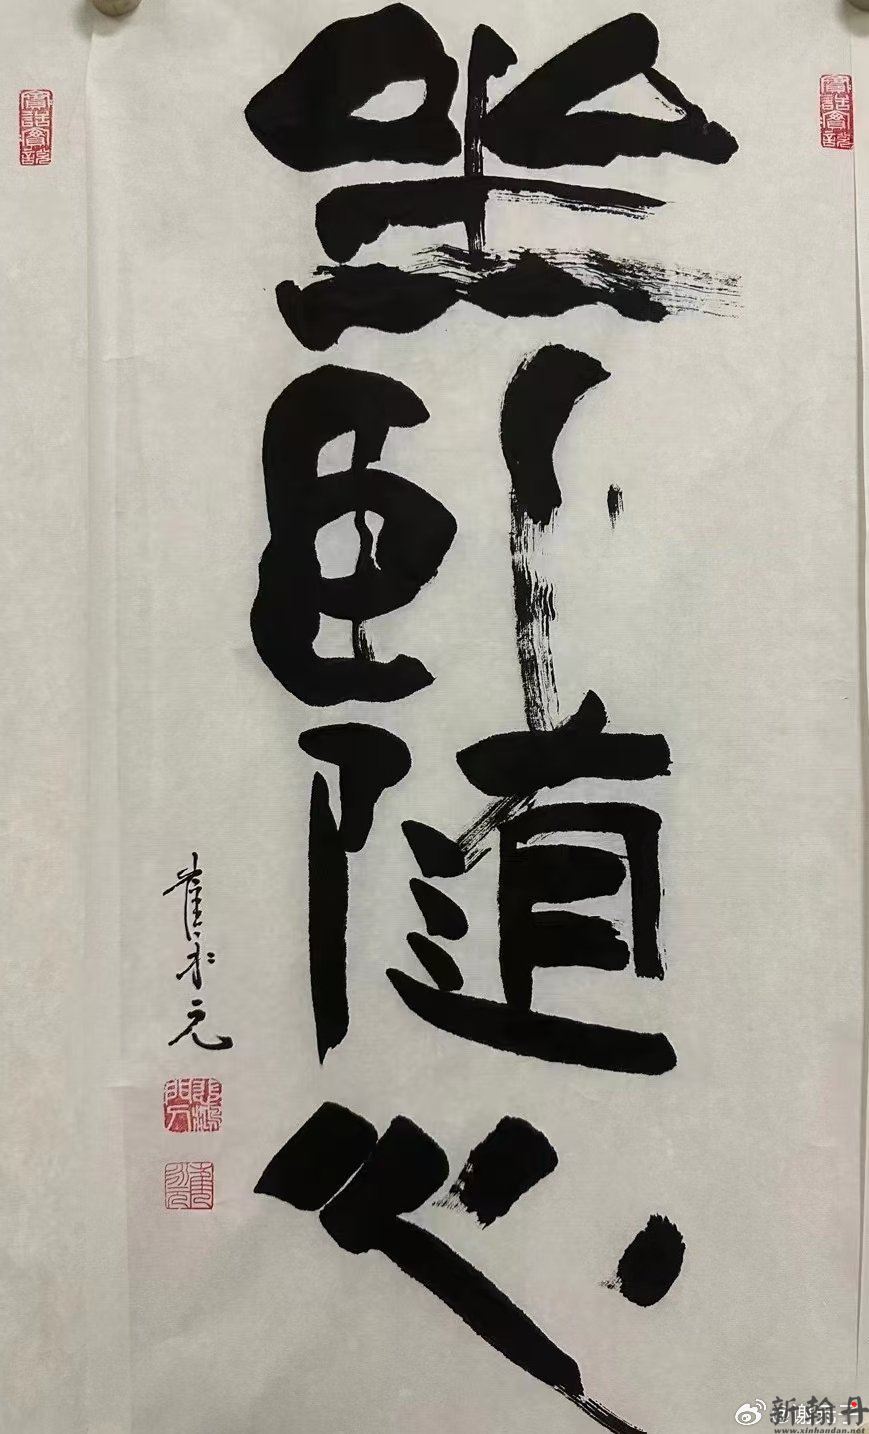 坐卧随心
崔永元
新翰丹
www.xinhandan.net